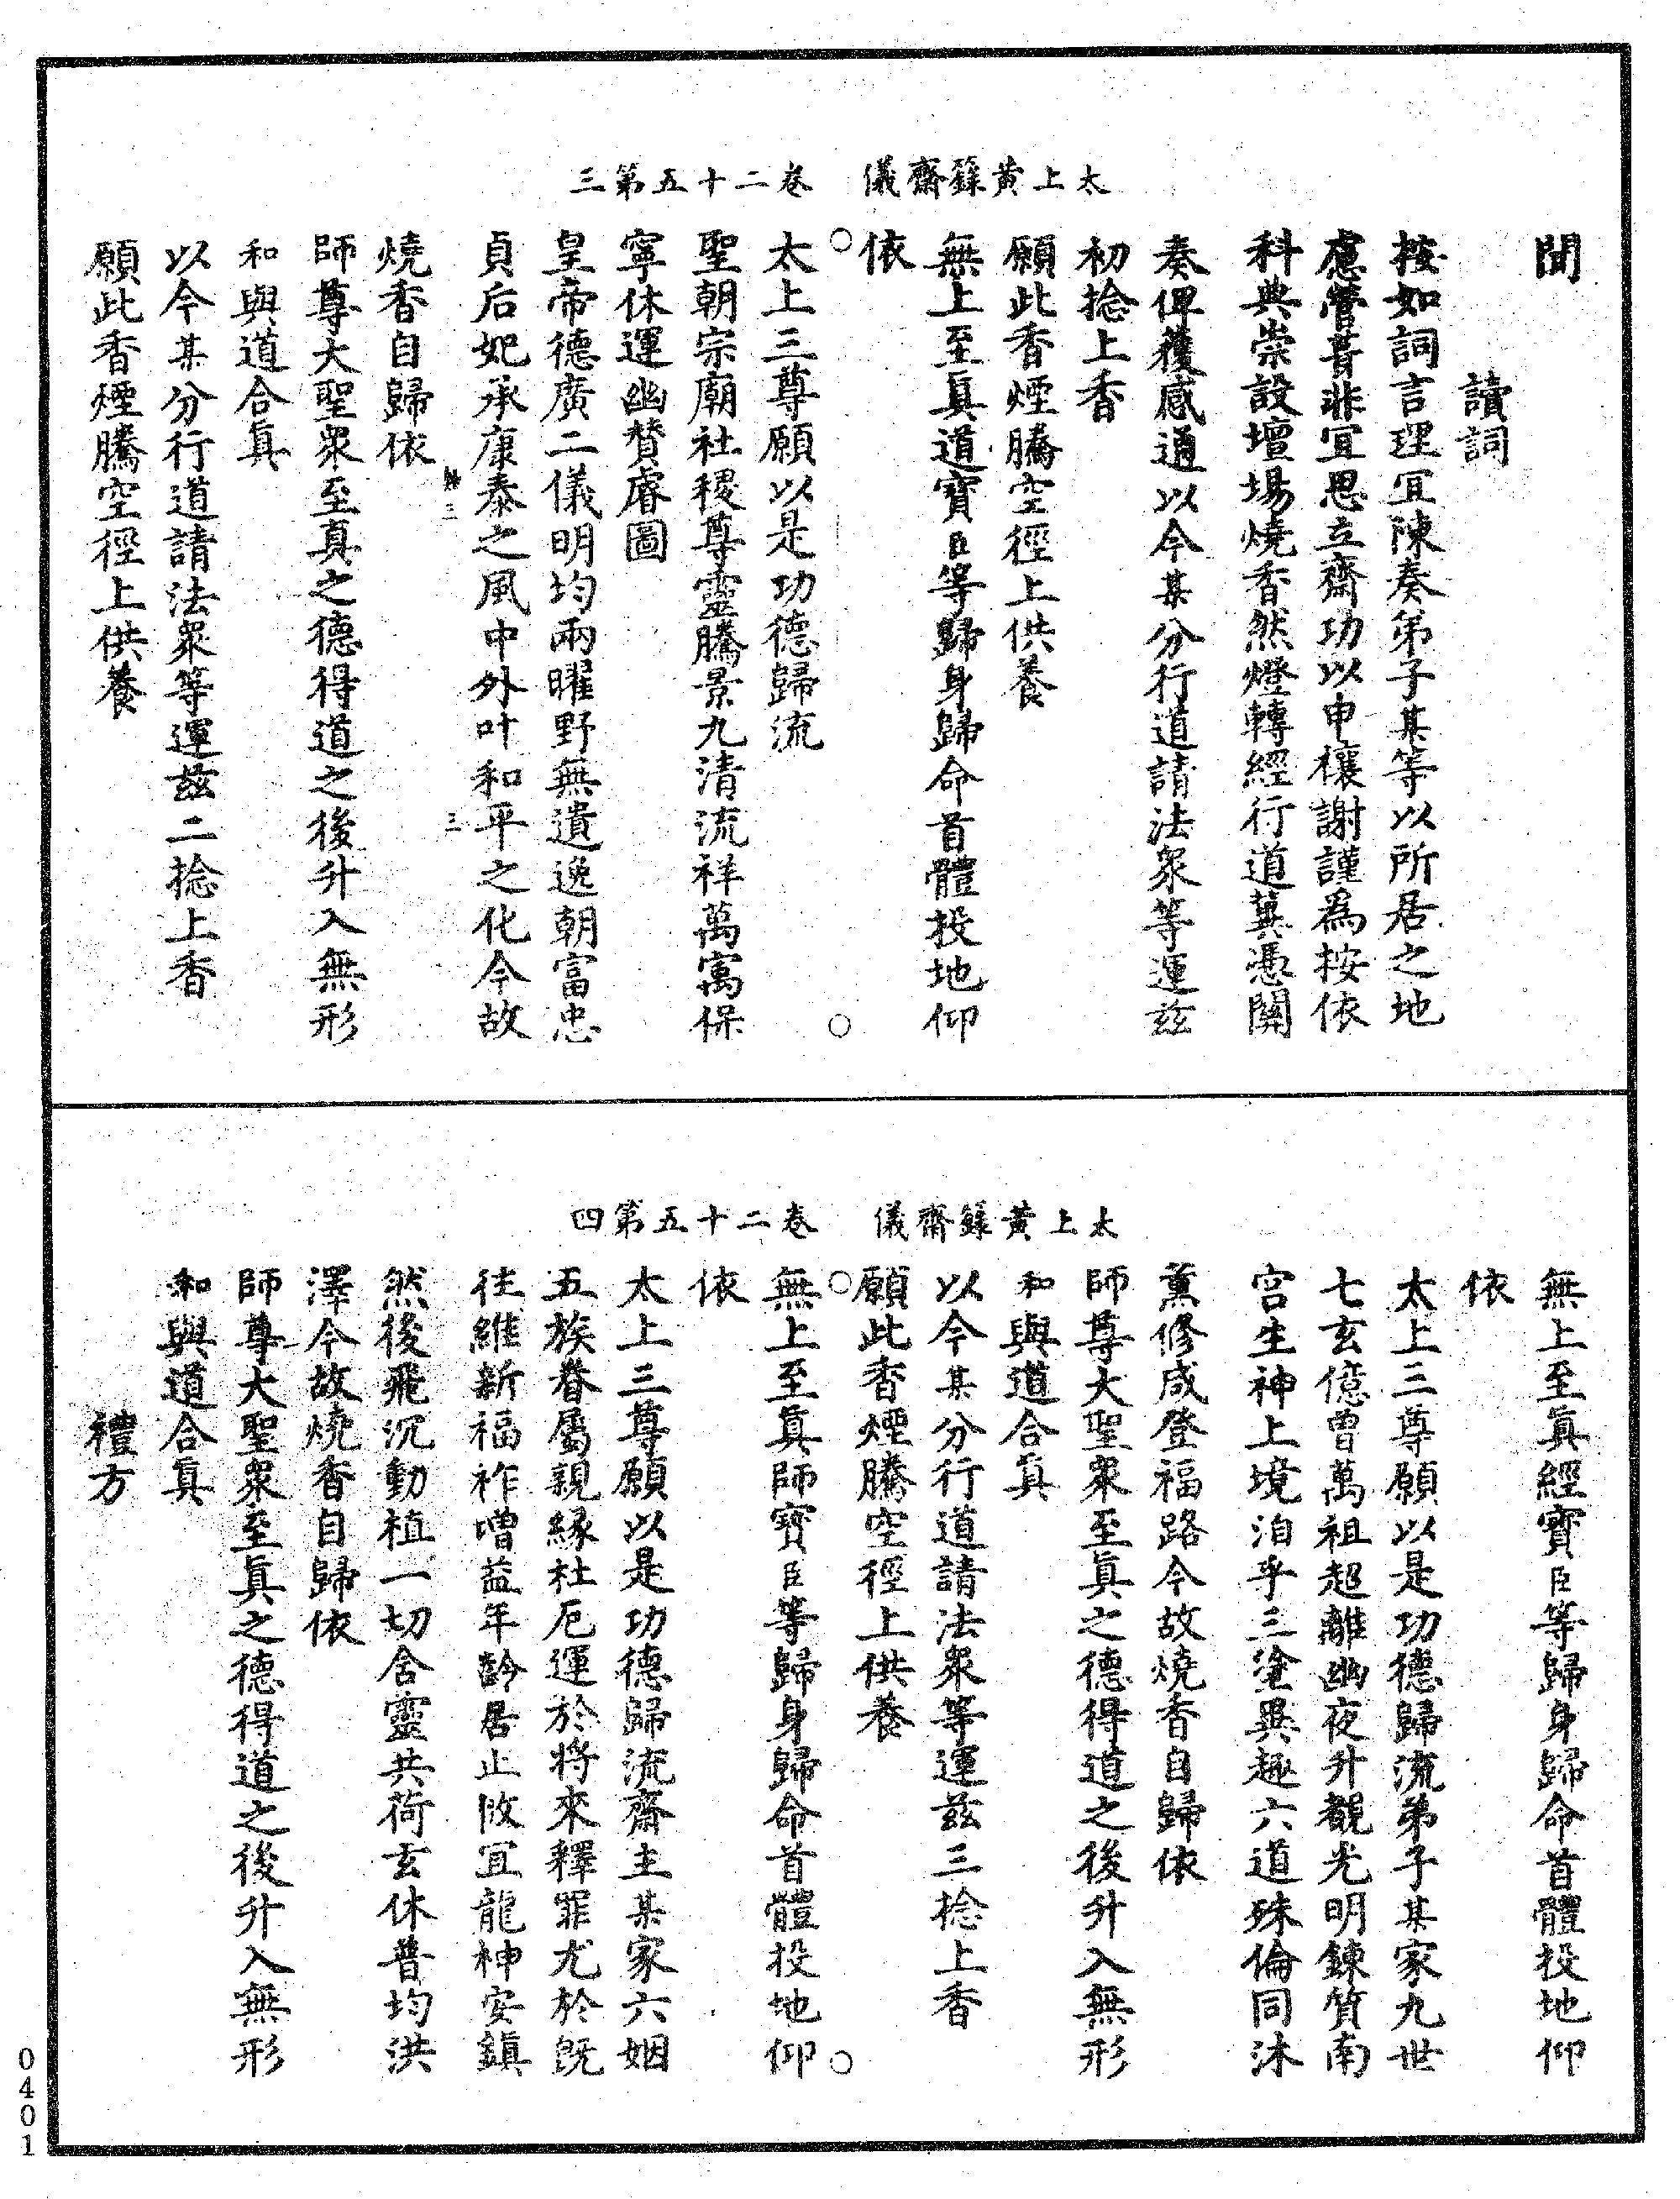 太上黃籙齋儀　卷二十五第三
聞
讀詞
按如詞言理宜陳奏弟子某等以所居之地
慮營葺非宜思立齋功以申禳謝謹為按依
科典崇設壇場燒香然燈轉經行道冀憑關
奏俾獲感通以今某分行道請法眾等運茲
初捻上香
願此香煙騰空徑上供養
無上至真道寶臣等歸身歸命首體投地仰
依
太上三尊願以是功德歸流
聖朝宗廟社稷尊靈騰景九清流祥萬㝢保
寧休運幽贊睿圖
皇帝德廣二儀明均兩曜野無遺逸朝富忠
貞后妃承康泰之風中外叶和平之化今故
燒香自歸依
師尊大聖眾至真之德得道之後升入無形
和與道合真
以今某分行道請法眾等運茲二捻上香
願此香煙騰空徑上供養
太上黃籙齋儀　卷二十五第四
無上至真經寶臣等歸身歸命首體投地仰
依
太上三尊願以是功德歸流弟子某家九世
七玄億曾萬祖超離幽夜升覩光明鍊質南
宮生神上境洎乎三塗異趣六道殊倫同沐
薰修咸登福路今故燒香自歸依
師尊大聖眾至真之德得道之後升入無形
和與道合真
以今某分行道請法眾等運茲三捻上香
願此香煙騰空徑上供養
無上至真師寶臣等歸身歸命首體投地仰
依
太上三尊願以是功德歸流齋主某家六姻
五族眷屬親緣杜厄運於將來釋罪尤於既
往維新福祚增益年齡居止攸宜龍神安鎮
然後飛沉動植一切含靈共荷玄休普均洪
澤今故燒香自歸依
師尊大聖眾至真之德得道之後升入無形
和與道合真
禮方
0401